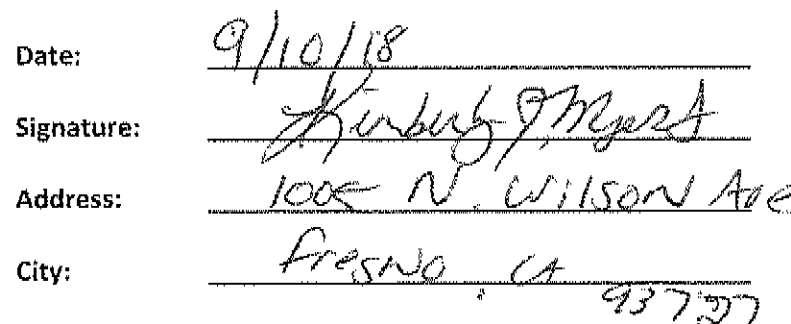 Date: 9/10/18
Signature: Kimberly J. Myers
Address: 1005 N. Wilson Ave
City: Fresno, CA
93727